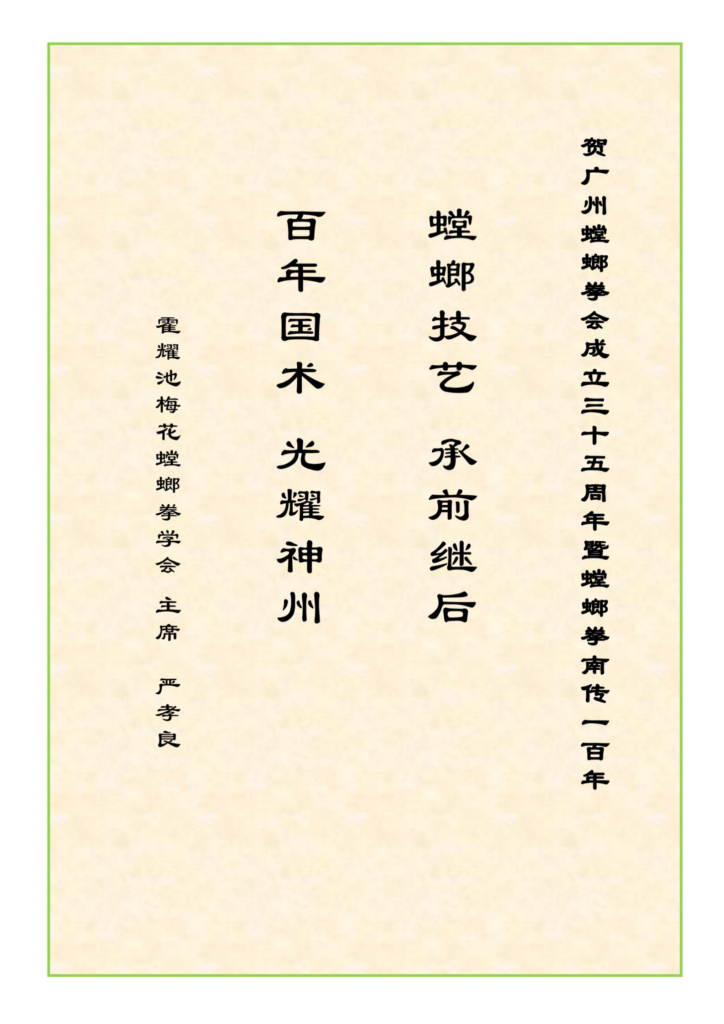 贺广州螳螂拳会成立三十五周年暨螳螂拳南传一百年
螳螂技艺 承前继后
百年国术 光耀神州
霍耀池梅花螳螂拳学会 主席 严孝良